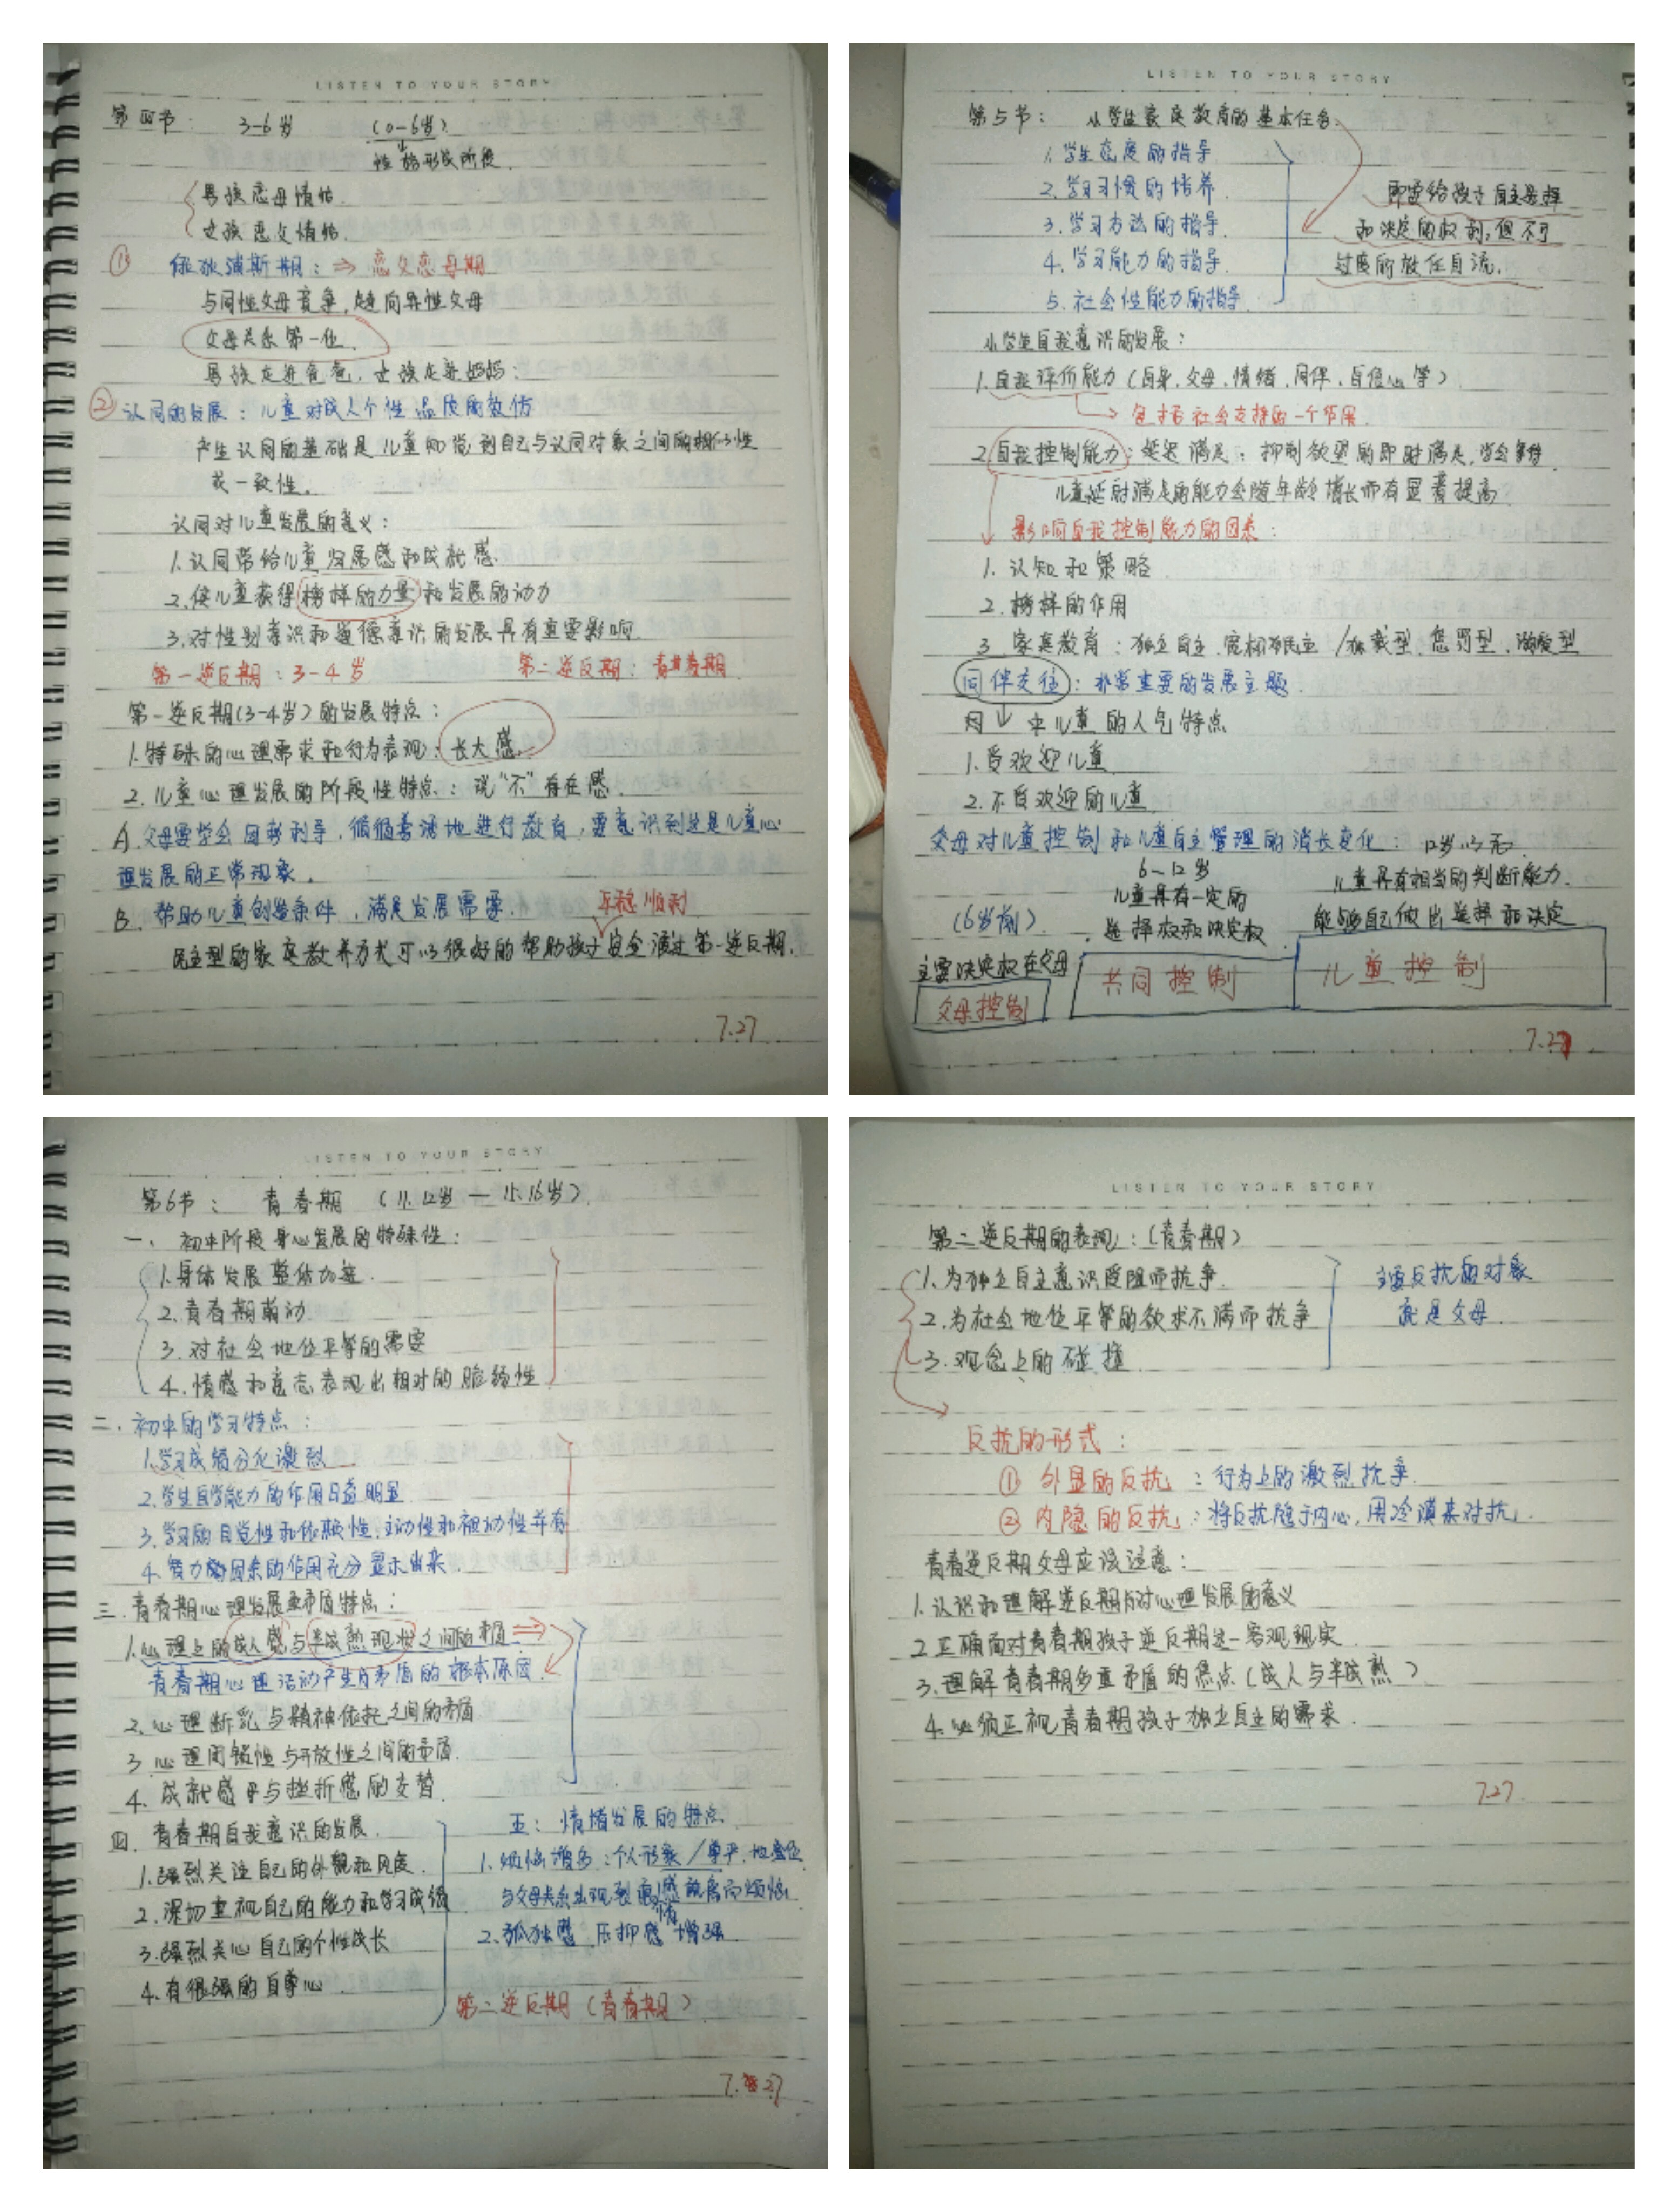 LISTEN TO YOUR STORY
第四节: 3-6岁 (0-6岁)
性格形成阶段.
男孩恋母情结.
女孩恋父情结.
① 俄狄浦斯期: ⇒ 恋父恋母期
与同性父母竞争,趋向异性父母
父母关系第一位.
男孩走进爸爸,女孩走进妈妈:
② 认同的发展: 儿童对成人个性品质的效仿
产生认同的基础是儿童知觉到自己与认同对象之间的相似性
或一致性.
认同对儿童发展的意义:
1.认同带给儿童归属感和成就感.
2.使儿童获得榜样的力量和发展的动力
3.对性别意识和道德意识的发展具有重要影响.
第一逆反期: 3-4岁 第二逆反期: 青春期
第一逆反期(3-4岁)的发展特点:
1.特殊的心理需求和行为表现: 长大感.
2.儿童心理发展的阶段性特点: 说“不”存在感.
A.父母要学会因势利导,循循善诱地进行教育,要意识到这是儿童心
理发展的正常现象.
B.帮助儿童创造条件,满足发展需要. 平稳 顺利
民主型的家庭教养方式可以很好的帮助孩子安全渡过第一逆反期.
7.27
LISTEN TO YOUR STORY
第5节: 小学生家庭教育的基本任务.
1.学生态度的指导.
2.学习习惯的培养
3.学习方法的指导.
4.学习能力的指导.
5.社会性能力的指导.
即要给孩子自主选择
和决定的权利,但不可
过度的放任自流.
小学生自我意识的发展:
1.自我评价能力(自身.父母.情绪.同伴.自信心等)
包括社会支持的一个作用.
2.自我控制能力: 延迟满足: 抑制欲望的即时满足,学会等待
儿童延时满足的能力会随年龄增长而有显著提高.
影响自我控制能力的因素:
1.认知和策略
2.榜样的作用
3.家庭教育: 独立自主.宽松民主/独裁型.惩罚型.溺爱型
同伴交往: 非常重要的发展主题.
中儿童的人气特点
1.受欢迎儿童
2.不受欢迎的儿童
父母对儿童控制和儿童自主管理的消长变化: 12岁以后
6-12岁
儿童具有一定的
选择权和决定权
儿童具有相当的判断能力.
能够自己做出选择和决定
(6岁前)
主要决定权在父母
父母控制 共同控制 儿童控制
7.27
LISTEN TO YOUR STORY
第6节: 青春期 (11.12岁—15.16岁)
一、初中阶段身心发展的特殊性:
1.身体发展整体加速.
2.青春期萌动
3.对社会地位平等的需要
4.情感和意志表现出相对的脆弱性
二.初中的学习特点:
1.学习成绩分化激烈
2.学生自学能力的作用日益明显
3.学习的自觉性和依赖性,主动性和被动性并存
4.智力因素的作用充分显示出来.
三.青春期心理发展矛盾特点:
1.心理上的成人感与半成熟现状之间的矛盾 ⇒
青春期心理活动产生矛盾的根本原因.
2.心理断乳与精神依托之间的矛盾
3.心理闭锁性与开放性之间的矛盾.
4.成就感与挫折感的交替.
四.青春期自我意识的发展.
1.强烈关注自己的外貌和风度.
2.深切重视自己的能力和学习成绩
3.强烈关心自己的个性成长
4.有很强的自尊心.
五: 情绪发展的特点
1.烦恼增多: 个人形象/尊严.地位
与父母关系出现裂痕,感情疏离而烦恼.
2.孤独感 压抑感 增强
第二逆反期(青春期)
7.27
LISTEN TO YOUR STORY
第二逆反期的表现: (青春期)
1.为独立自主意识受阻而抗争.
2.为社会地位平等的欲求不满而抗争
3.观念上的碰撞
主要反抗的对象
就是父母.
反抗的形式:
① 外显的反抗: 行为上的激烈抗争.
② 内隐的反抗: 将反抗隐于内心,用冷漠来对抗.
青春逆反期父母应该注意:
1.认识和理解逆反期对心理发展的意义
2.正确面对青春期孩子逆反期这一客观现实.
3.理解青春期多重矛盾的焦点(成人与半成熟)
4.必须正视青春期孩子独立自主的需求.
7.27.